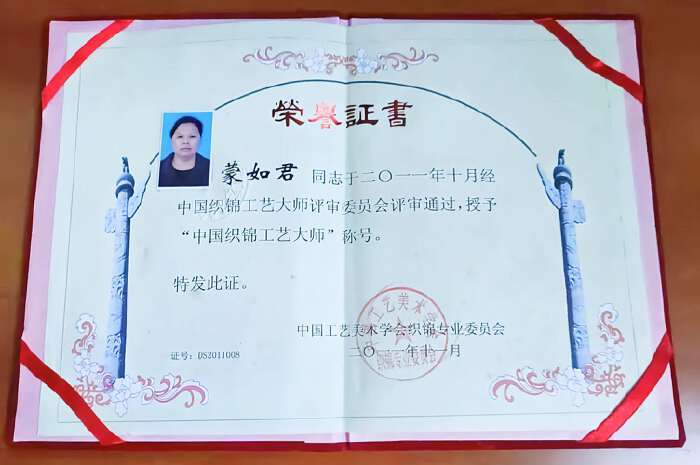 榮譽証書
蒙如君 同志于二〇一一年十月经
中国织锦工艺大师评审委员会评审通过，授予
“中国织锦工艺大师”称号。
特发此证。
中国工艺美术学会织锦专业委员会
二〇一一年十一月
证号：DS2011008